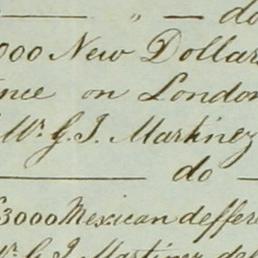 " — do
000 New Dollar
on London
Wr. G. J. Martinez
do
£3000 Mexican deffer
Wr. G J Martinez del